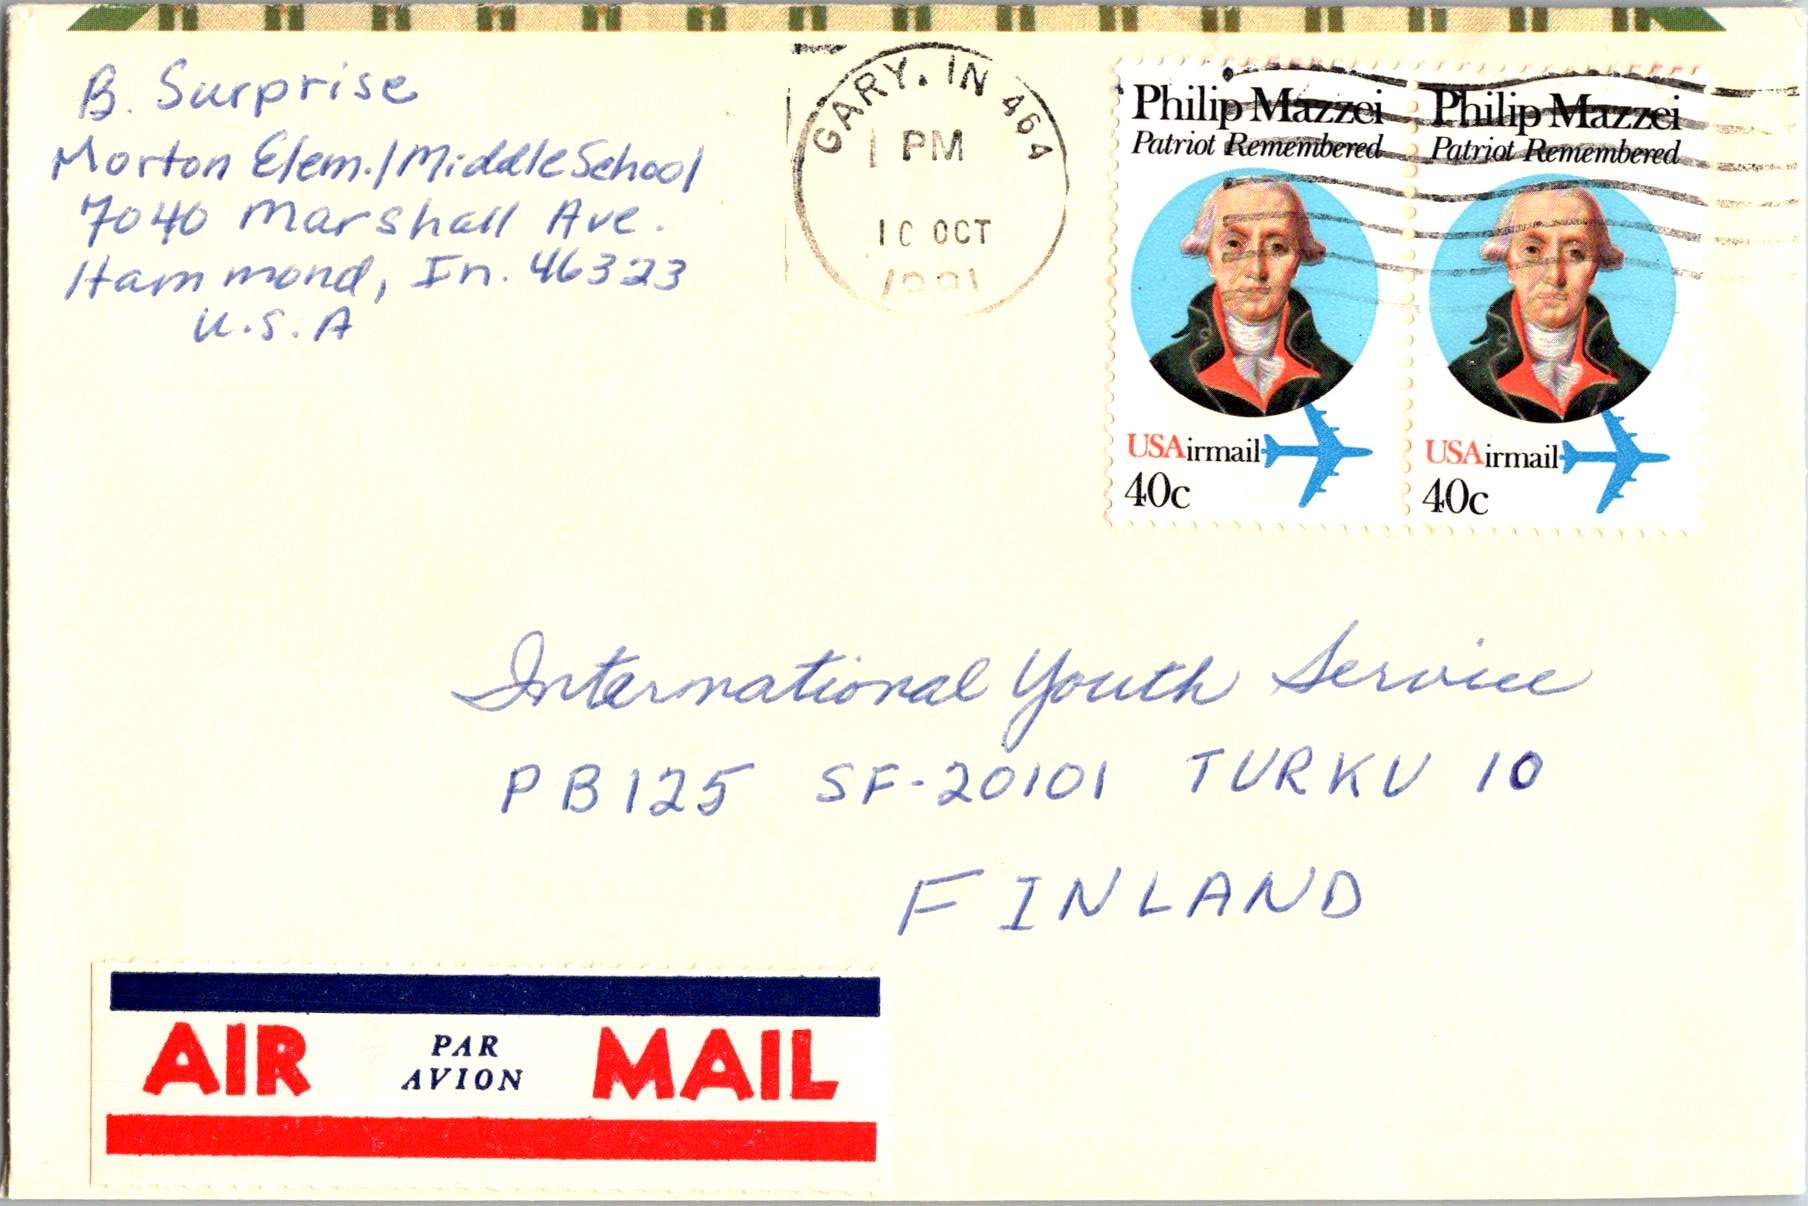 B. Surprise
Morton Elem./Middle School
7040 Marshall Ave.
Hammond, In. 46323
U.S.A
GARY, IN 464
PM
10 OCT
1991
Philip Mazzei
Patriot Remembered
USAirmail
40c
Philip Mazzei
Patriot Remembered
USAirmail
40c
International Youth Service
PB125 SF-20101 TURKU 10
FINLAND
AIR PAR AVION MAIL